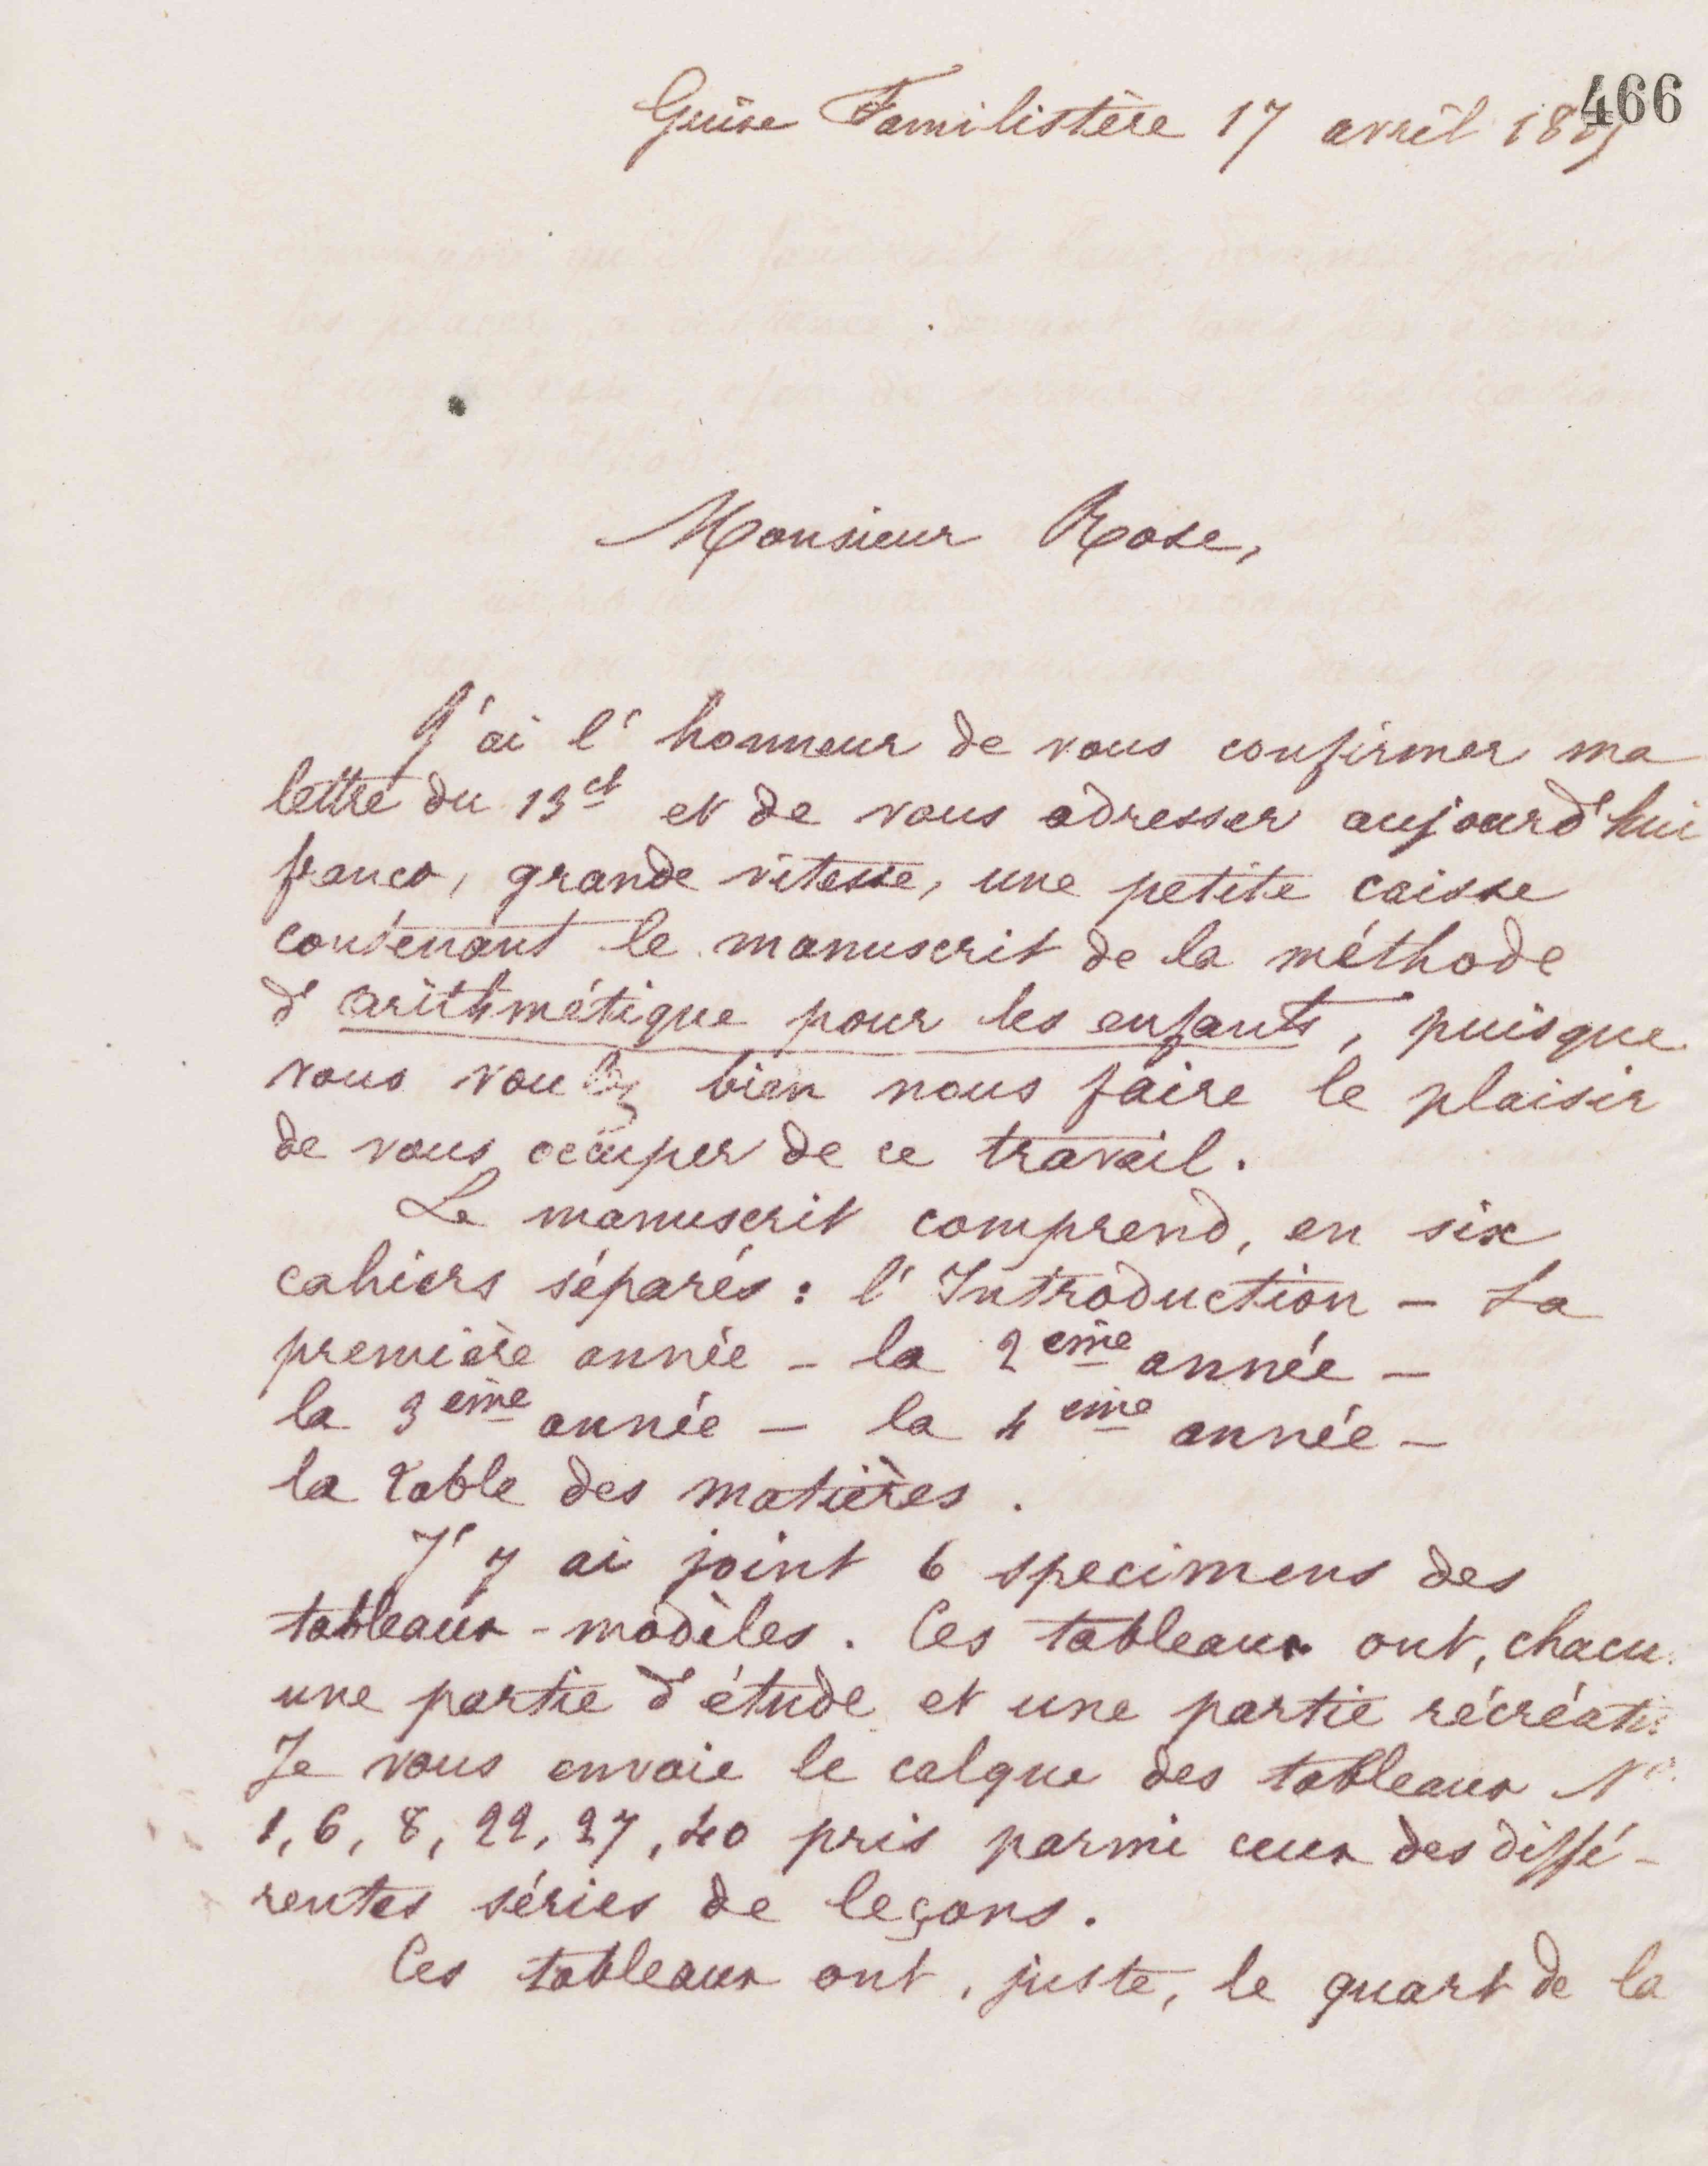 466
Guise Familistère 17 avril
Monsieur Rose,
J'ai l'honneur de vous confirmer ma
lettre du 13 ct et de vous adresser aujourd'hui
franco, grande vitesse, une petite caisse
contenant le manuscrit de la méthode
d'arithmétique pour les enfants, puisque
vous voulez bien nous faire le plaisir
de vous occuper de ce travail.
Le manuscrit comprend, en six
cahiers séparés : l'Introduction - La
première année - la 2ème année -
la 3ème année - la 4ème année -
la table des matières.
J'y ai joint 6 specimens des
tableaux-modèles. Ces tableaux ont, chacu
une partie d'étude et une partie récréati
Je vous envoie le calque des tableaux No
1, 6, 8, 22, 27, 40 pris parmi ceux des diffé-
rentes séries de leçons.
Ces tableaux ont, juste, le quart de la